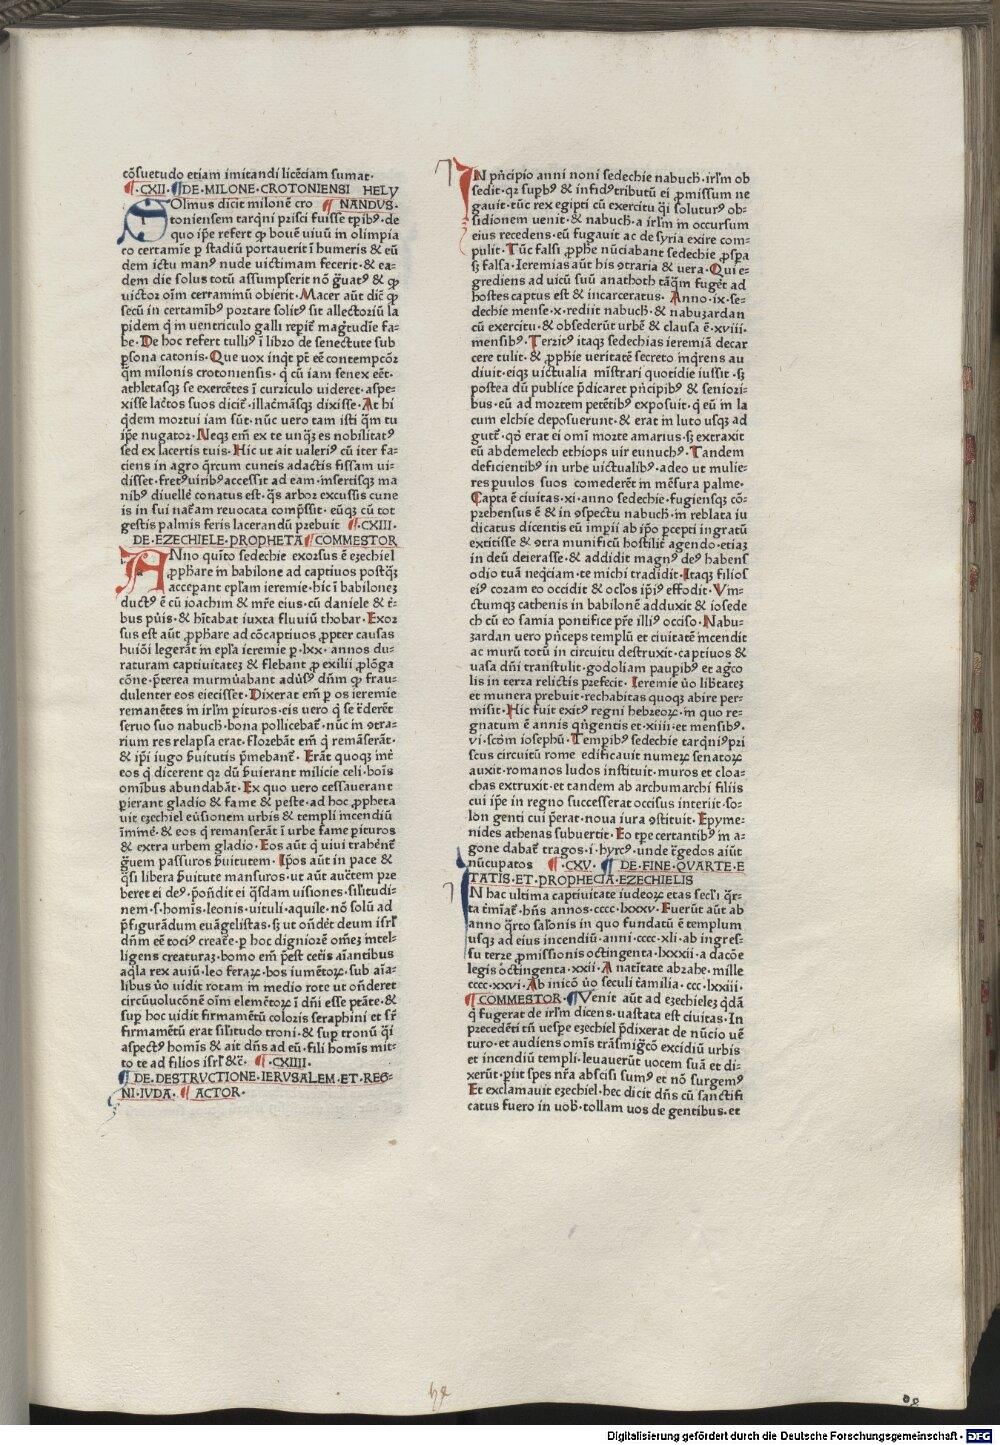 cōsuetudo etiam imitandi licēciam sumat·
¶·CXII·¶DE·MILONE·CROTONIENSI HELV
SOlinus dicit milonē cro ¶ NANDVS·
toniensem tarqni prisci fuisse tp̄ibꝰ·de
quo ip̄e refert ꝙ bouē uiuū in olimpia
co certamīe ꝑ stadiū portauerit ī humeris & eū
dem ictu manꝰ nude uictimam fecerit·& ea=
dem die solus totū assumpserit nō g̃uatꝰ & ꝙ
uictor oīm certaminū obierit·Macer aūt dic̄ ꝙ
secū in certamībꝰ portare solitꝰ sit allectoriū la
pidem q̄ in uentriculo galli reperit̄ magtudīe fa=
be·De hoc refert tulliꝰ ī libro de senectute sub
ꝑsona catonis·Que uox inqt pt̄ eē contempcōr
q̄m milonis crotoniensis· q̄ cū iam senex eēt·
athletasqꝫ se exercētes ī curriculo uideret·aspe=
xisse lac̄tos suos dicit̄·illac̄māsqꝫ dixisse·At hi
q̄dem mortui iam sūt·nūc uero tam isti q̄m tu
ip̄e nugator·Neqꝫ em̄ ex te unq̄ꝫ es nobilitatꝰ
sed ex lacertis tuis·Hic ut ait ualeriꝰ cū iter fa=
ciens in agro q̄rcum cuneis adactis fissam ui=
disset·fretꝰuiribꝰaccessit ad eam·insertisqꝫ ma
nibꝰ diuelle conatus est·q̄s arbor excussis cune
is in sui nat̄am reuocata comp̄ssit·eūqꝫ cū tot
gestis palmis feris lacerandū prebuit ¶·CXIII·
DE·EZECHIELE·PROPHETA¶COMMESTOR
ANno quīto sedechie exorsus ē ezechiel
ꝓphare in babilone ad captiuos postq̄ꝫ
acceperant ep̄lam ieremie·hic ī babilonez
ductꝰ ē cū ioachim & mr̄e eius·cū daniele & t̄=
bus pūis·& hītabat iuxta fluuiū thobar·Exor
sus est aūt ꝓphare ad cōcaptiuos ꝓpter causas
huiōi legerāt in ep̄la ieremie ꝑ·lxx·annos du=
raturam captiuitatez & flebant ꝓ exilii ꝓlōga
cōne·p̄terea murmūabant adūsꝰ dn̄m ꝙ frau=
dulenter eos eiecisset·Dixerat em̄ ꝑ os ieremie
remanētes in irl̄m pituros·eis uero q̄ se t̄derēt
seruo suo nabuch·bona pollicebat̄·nūc in ꝯtra=
rium res relapsa erat·florebāt em̄ q̄ remāserāt·
& ip̄i iugo s̄uitutis p̄mebant̄·Erāt quoqꝫ int̄
eos q̄ dicerent qꝛ dū s̄uierant milicie celi·boīs
omībus abundabāt·Ex quo uero cessauerant
pierant gladio & fame & peste·ad hoc ꝓpheta
uit ezechiel eūsionem urbis & templi incendiū
īmīne·& eos q̄ remanserāt ī urbe fame pituros
& extra urbem gladio·Eos aūt q̄ uiui trahent̄
g̃uem passuros s̄uitutem·Ip̄os aūt in pace &
q̄si libera s̄uitute mansuros·ut aūt auc̄tem pre
beret ei deꝰ·ꝓondit ei q̄sdam uisiones·sil̄itudi=
nem·s·homīs·leonis·uituli·aquile·nō solū ad
p̄figurādum euāgelistas·sꝫ ut ondēt̄ deum isrl̄
dn̄m eē tociꝰ creat̄e·ꝑ hoc digniorē om̄eꝫ intel=
ligens creaturaꝫ·homo em̄ p̄est cet̄is aīantibus
aq̄la rex auiū·leo feraꝝ·bos iumētoꝝ·sub aīa=
libus ūo uidit rotam in medio rote ut ondēret
circūuolucōnē oīm elemētoꝝ ī dn̄i esse ptāte·&
sup hoc uidit firmamētū coloris seraphini et sr̄
firmamētū erat sil̄itudo troni·& sup tronū q̄i
aspectꝰ homīs & ait dn̄s ad eū·fili homīs mit=
to te ad filios isrl̄ &c̄· ¶·CXIIII·
¶DE·DESTRVCTIONE·IERVSALEM·ET·REG=
NI·IVDA· ¶ACTOR·
IN pn̄cipio anni noni sedechie nabuch̄·irl̄m ob
sedit·qꝛ supbꝰ & infidꝰtributū ei ꝓmissum ne
gauit·tūc rex egipti cū exercitu q̄i soluturꝰ ob=
sidionem uenit·& nabuch̄·a irl̄m in occursum
eius recedens·eū fugauit ac de syria exire com=
pulit·Tūc falsi ꝓphe nūciabant sedechie ꝓspa
sꝫ falsa·Ieremias aūt his ꝯtraria & uera·Qui e=
grediens ad uicū suū anathoth tāq̄m fuget̄ ad
hostes captus est & incarceratus· Anno·ix·se=
dechie mense·x·rediit nabuch̄·& nabuzardan
cū exercitu·& obsederūt urbē & clausa ē·xviii·
mensibꝰ·Terziꝰ itaqꝫ sedechias ieremiā decar
cere tulit·& ꝓphīe ueritatē secreto inq̄rens au
diuit·eiqꝫ uictualia mīstrari quotidie iussit·sꝫ
postea dū publice p̄dicaret pn̄cipibꝰ & seniori=
bus·eū ad mortem petētibꝰ exposuit·q̄ eū in la
cum elchie deposuerūt·& erat in luto usqꝫ ad
gutt̄·qō erat ei omī morte amarius·sꝫ extraxit
eū abdemelech ethiops uir eunuchꝰ·Tandem
deficientibꝰ in urbe uictualibꝰ·adeo ut mulie=
res puulos suos comederēt in mēsura palme·
Capta ē ciuitas·xi·anno sedechie·fugiensqꝫ cō=
prehensus ē & in ꝯspectu nabuch̄·in reblata iu
dicatus dicentis eū impiī ab ip̄o pcepti ingratū
extitisse & ꝯtra munificū hostilit̄ agendo·etiaꝫ
in deū deierasse·& addidit magnꝰ deꝰ habens
odio tuā neqciam·te michi tradidit·Itaqꝫ filios
eiꝰ coram eo occidit & ocl̄os ip̄iꝰ effodit·Vin=
ctumqꝫ cathenis in babilonē adduxit & iosede
ch cū eo samia pontifice pr̄e illiꝰ occiso·Nabu=
zardan uero pn̄ceps templū et ciuitatē incendit
ac murū totū in circuitu destruxit·captiuos &
uasa dn̄i transtulit·godoliam paupibꝰ et agco
lis in terra relictis prefecit·Ieremie ūo lib̄tateꝫ
et munera prebuit·rechabitas quoqꝫ abire per=
misit·Hic fuit exitꝰ regni hebreoꝝ·in quo re=
gnatum ē annis qn̄gentis et·xiiii·et mensibꝰ·
vi·scdm iosephū·Tempibꝰ sedechie tarqniꝰpri
scus circuitū rome edificauit·numeꝝ senatoꝝ
auxit·romanos ludos instituit·muros et cloa=
chas extruxit·et tandem ab archumarchi filiis
cui ip̄e in regno successerat occisus interiit·so=
lon genti cui p̄erat·noua iura ꝯstituit·Epyme=
nides athenas subuertit·Eo tp̄e certantibꝰ in a=
gone dabat̄ tragos·i·hyrcꝰ·unde t̄gedos aiūt
nūcupatos ¶·CXV·¶ DE·FINE·QVARTE·E
TATIS·ET·PROPHECIA·EZECHIELIS
IN hac ultima captiuitate iudeoꝝ etas secl̄i q̄r=
ta t̄mīat̄·hn̄s annos·cccc·lxxxv·Fuerūt aūt ab
anno q̄rto salōnis in quo fundatū ē templum
usqꝫ ad eius incendiū·anni·cccc·xli·ab ingres=
su terre ꝓmissionis octingenta·lxxxii·a dacōe
legis octingenta·xxii·A natītate abrahe·mille
cccc·xxvi·Ab inicō ūo seculi t̄amilia·ccc·lxxiii·
¶COMMESTOR·¶Venit aūt ad ezechieleꝫ q̄dā
q̄ fugerat de irl̄m dicens·uastata est ciuitas·In
precedēti tn̄ uespe ezechiel p̄dixerat de nūcio uē
turo·et audiens omīs trāsmigcō excidiū urbis
et incendiū templi·leuauerūt uocem suā et di=
xerūt·piit spes nr̄a abscisi sumꝰ et nō surgemꝰ
Et exclamauit ezechiel·hec dicit dn̄s cū sanctifi
catus fuero in uob̄·tollam uos de gentibus·et
Digitalisierung gefördert durch die Deutsche Forschungsgemeinschaft - DFG